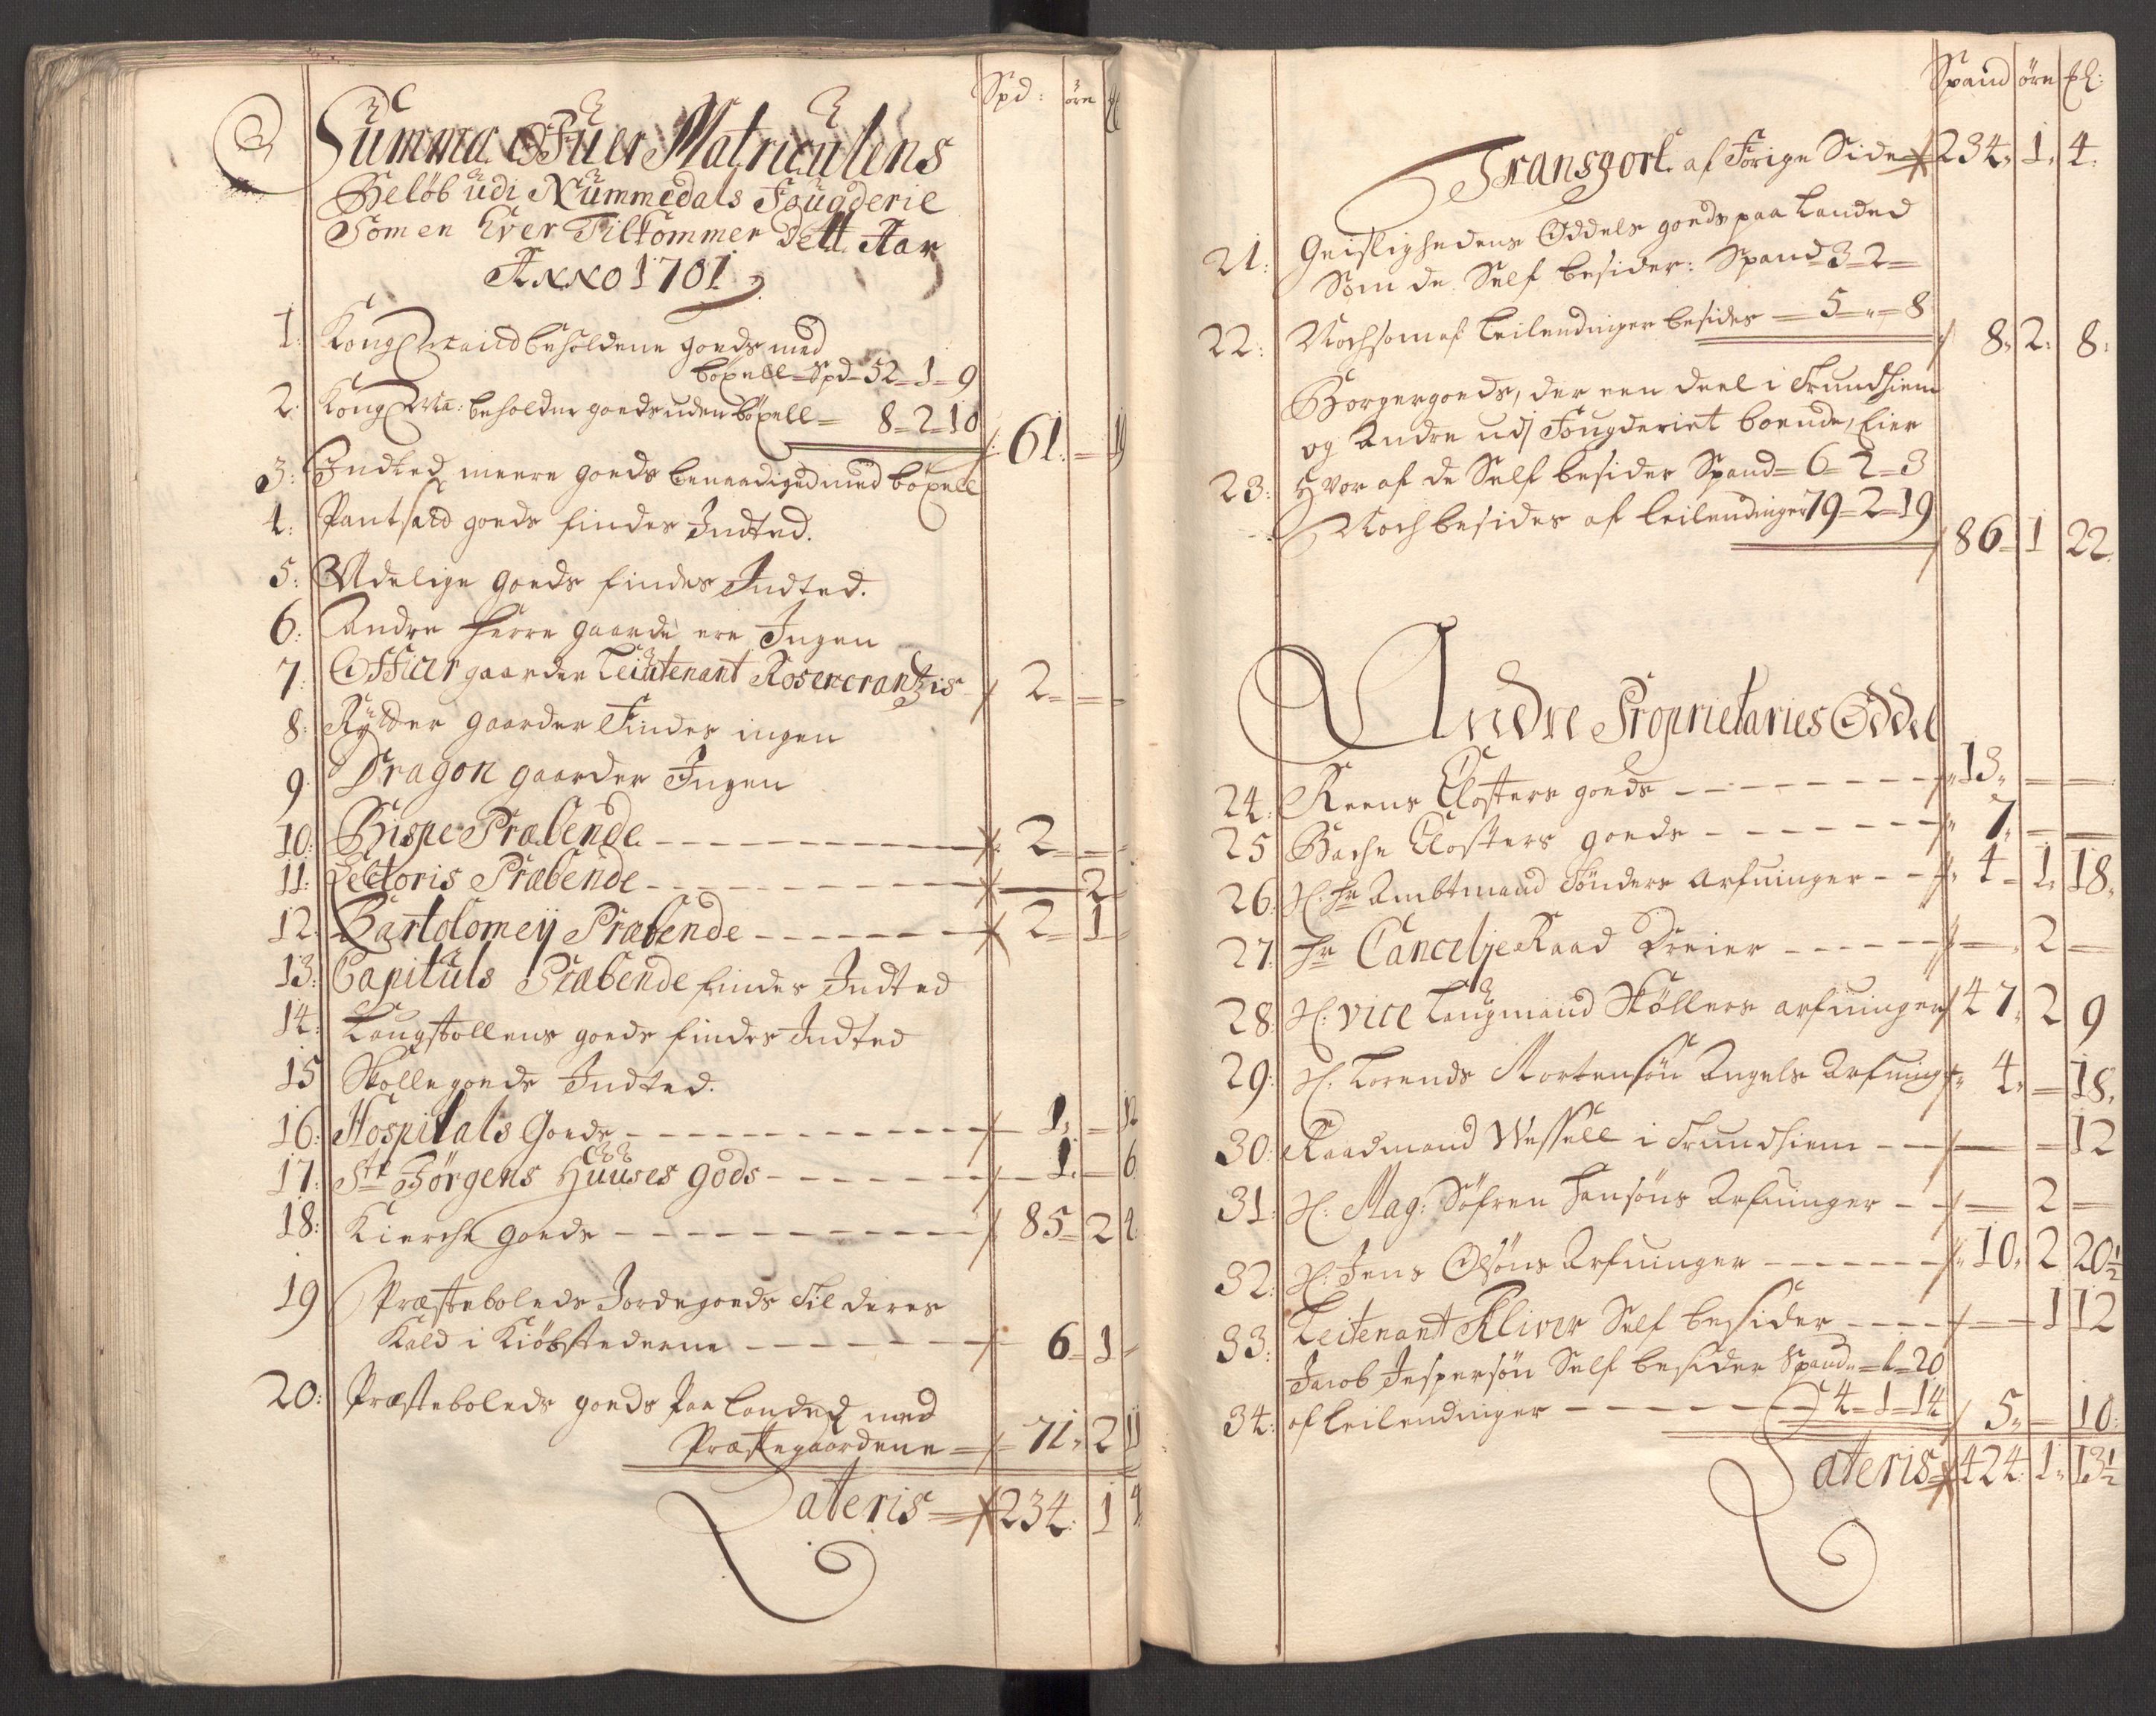 Spd: øre
Summa Ofuer Matriculens
Beløb udi Nummedals Fougderie
Som en hver Tilkommer dett Aar
Anno 1701
1. Kongl Maitts beholdene goeds med
böxell = Spd = 52 = 1 = 9
2. Kongl Ma: beholdne goeds uden böxell = 8 = 2 = 10 61. = 19
3: Indted meere goeds benaadiged med böxell
4: Pantsatt goeds findes Indted.
5: Adelige goeds findes Indted.
6: Andre herre gaarde ere Ingen
7: Officer gaarder Leiutenant Rosencrantzis 2 = =
8: Rytter gaarder Findes ingen
9. Dragon gaarder Ingen
10: Bispe Præbende 2 = =
11: Lectoris Præbende 2
12: Bartolomeÿ Præbende 2 = 1
13: Capituls Præbende findes Indted
14: Laugstollens goeds findes Indted
15 Skolle goeds Indted.
16: Hospitals Goeds 1. = 12
17: Ste Jørgens Huuses gods 1. = 6
18: Kierche goeds 85 = 2 4
19 Præstebolleds Jordegoeds Til deres
Kald i Kiöbstederne 6 = 1 =
20: Præstebolleds goeds Paa Landed med
Præstegaardene = 71. 2 11
Lateris = 234. 1 4
Spand øre
Transport af Forige Side 234. 1. 4.
21: Geistlighedens Oddels goeds paa Landed
Som de Self besider: Spand 3 = 2 =
22: Noch som af Leilendinger besides = 5 = " = 8 8. 2. 8.
Borgergoeds, der een deel i Trundhiem
og Andre udj Fougderiet boende, Eier
23: Hvor af de Self besider Spand = 6 = 2 = 3
Noch besides af Leilendinger 79 = 2 = 19 86 = 1 22.
Andre Proprietaries Oddel
24. Reens Closters goeds 13. = =
25 Bache Closters goeds 7. = =
26. Sl. Hr Ambtmand Tönders Arfuinger 4 = 1. 18.
27. Hr Cancelje Raad Dreier = 2 =
28. Sl: vice Laugmand Støllers arfuinger 47. 2 9
29: Sl. Lorends Mortensön Angels Arfuing 4. = 18.
30: Raadmand Wessell i Trundhiem = 12
31: Sl: Mag: Söfren Hansöns Arfuinger = 2 =
32: Sl: Jens Olsöns Arfuinger 10. 2 20½
33: Leitenant Kliver Self besider = 1 12
Jacob Jespersön Self besider Spand = 1 = 20
34: af Leilendinger 4 = 1 = 14 5. = 10:
Lateris 424. 1. 13½